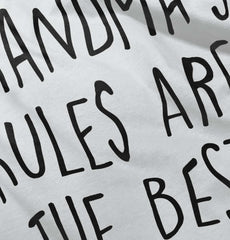 ANDMA'S
RULES ARE
THE BEST